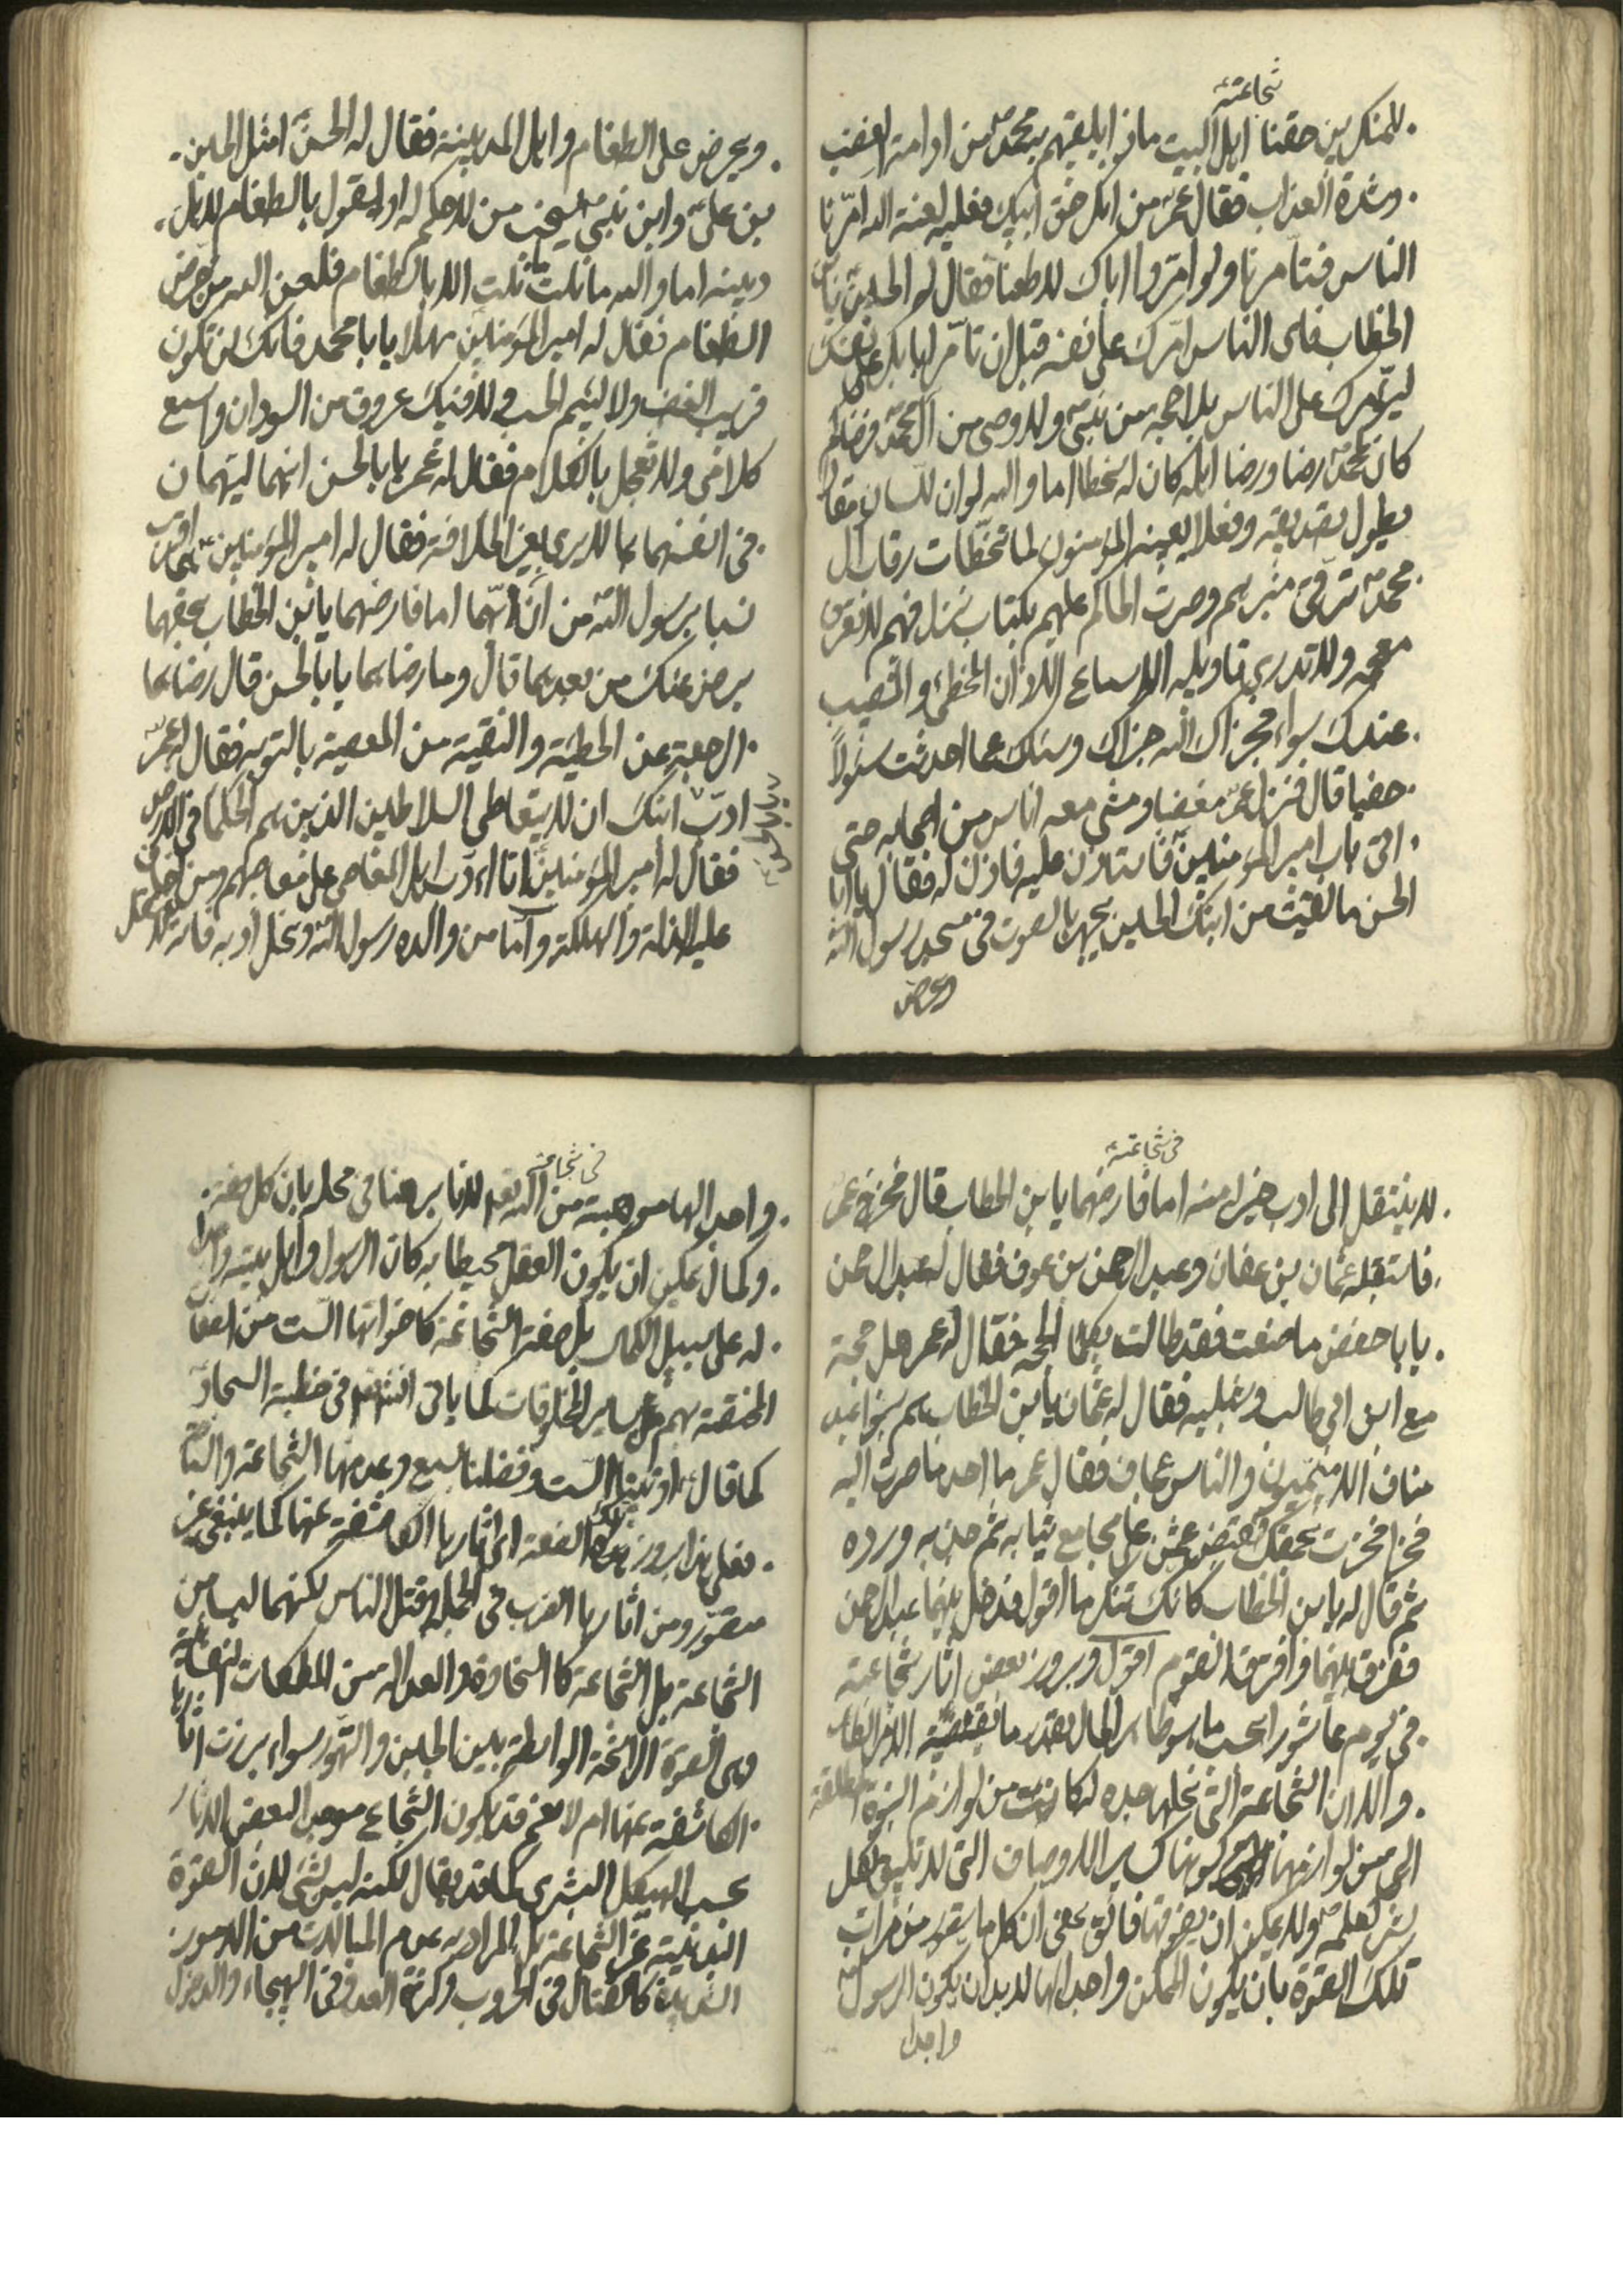 شجاعته
للمنكرين حقنا اهل البيت ماذا يلقيهم به محمد من ادامة الغضب
وشدة العذاب فقال عمر من انكر حق ابيك فعليه لعنة الله امّرنا
الناس فتأمرنا ولو امّروا اباك لاطعنا فقال له الحسين يا بن
الخطاب فاى الناس امّرك على نفسه قبل ان تأمر ابا بكر على نفسك
ليؤمرك على الناس بلا حجة من نبى ولا وصى من آل محمد فرضاكم
كان لمحمد رضا ورضا اهله كان له سخطا اما والله لو ان للسان مقالا
يطول تصديقه وفعلا يعينه المؤمنون لما تخطأت رقاب آل
محمد ترقى منبرهم وصرت الحاكم عليهم بكتاب نزل فيهم لا تعرف
معجمه ولا تدرى تاويله الا سماع الاذان المخطئ والمصيب
عندك سواء فجزاك الله جزاك وسئلك عما احدثت سئولاً
حفيا قال فنزل عمر مغضبا ومشى معه اناس من اصحابه حتى
اتى باب امير المؤمنين فاستاذن عليه فاذن له فقال يا ابا
الحسن ما لقيت من ابنك الحسين يجهرنا بالصوت فى مسجد رسول الله
ويحرض
ويحرض على الطغام واهل المدينة فقال له الحسن امثل الحسين
بن على وابن نبى يستحث من لا حكم له او يقول بالطغام لاهل
دينه اما والله ما نلت ما نلت الا بالطغام فلعن الله من حرض
الطغام فقال له امير المؤمنين مهلا يا با محمد فانك لن تكون
قريب الغضب ولا لئيم الحسب ولا فيك عروق من السودان واسمع
كلامى ولا تعجل بالكلام فقال له عمر يا با الحسن انهما ليهمان
فى انفسهما بما لا يرى بغير الخلافة فقال له امير المؤمنين هما اقرب
نسبا برسول الله من ان يهما اما فارضهما يا بن الخطاب بحقهما
يرض عنك من بعدهما قال وما رضاهما يا با الحسن قال رضاهما
الرجعة عن الخطيئة والتقية من المعصية بالتوبة فقال له عمر
ادب ابنك ان لا يتعاطى السلاطين الذين هم الحكما فى الارض
فقال له امير المؤمنين انا اؤدب اهل المعاصى على معاصيهم ومن اخاف
عليه الزلة والهلكة واما من والده رسول الله ونحل ادبه فانه
فى شجاعته
لا ينتقل الى ادب خير له منه اما فارضهما يا بن الخطاب قال فخرج عمر
فاستقبله عثمان بن عفان وعبد الرحمن بن عوف فقال له عبد الرحمن
يا با حفص ما صنعت فقد طالت بكما الحجة فقال له عمر وهل حجة
مع ابن ابي طالب وشبليه فقال له عثمان يا بن الخطاب هم بنو عبد
مناف الاسمنون والناس عجاف فقال عمر ما اعد ما صرت اليه
فخرا فخرت بحمقك فقبض عثمن على مجامع ثيابه ثم جذبه ورده
ثم قال له يا بن الخطاب كانك تنكر ما اقول فدخل بينهما عبد الرحمن
ففرق بينهما وافترق القوم اقول وبروز بعض آثار شجاعته
فى يوم عاشورا بحسب ما هو ظاهر الحال بقدر ما يقتضيه الامر الظاهر
والا ان الشجاعة التى نحلها جده لكانت من لوازم النبوة المطلقة
التى من لوازمها كونها كساير الاوصاف التى لا تليق لكل
بشر كعلمه ولا يمكن ان يفوقها فائق بمعنى ان كل ما يتصور من مراتب
تلك القوة بان يكون الممكن واجدا لها لا بد ان يكون الرسول
واجدا
فى شجاعته
واجدا لها موهبة من الله تعالى لانا برهنا فى محله بان كل صفة
وكمال يمكن ان يكون العقل محيطا به كان الرسول واهل بيته واجدا
له على سبيل الكمال بل صفة الشجاعة كاخواتها الست من الصفات
المختصة بهم على ساير المخلوقات كما ياتى فى خطبة السجاد
كما قال اوتينا الست وفضلنا بسبع وعد منها الشجاعة
فعلى هذا بروز هذه الصفة اى اثارها الكاشفة عنها كما ينبغى غير
متصور ومن اثارها الضرب فى الجملة وقتل الناس لكنهما ليسا من
الشجاعة بل الشجاعة كالسخاوة والعدالة من الملكات النفسانية
وهى القوة الراسخة الواسطة بين الجبن والتهور سواء برزت اثارها
الكاشفة عنها ام لا نعم قد يكون الشجاع موجدا لبعض الاثار
بحسب الهيكل البشرى كما قد يقال لكنه ليس بشئ لان القوة
البدنية غير الشجاعة بل المراد به عدم المبالات من الامور
الشديدة كالقتال فى الحروب وكثرة العدو فى الهيجاء والدخول